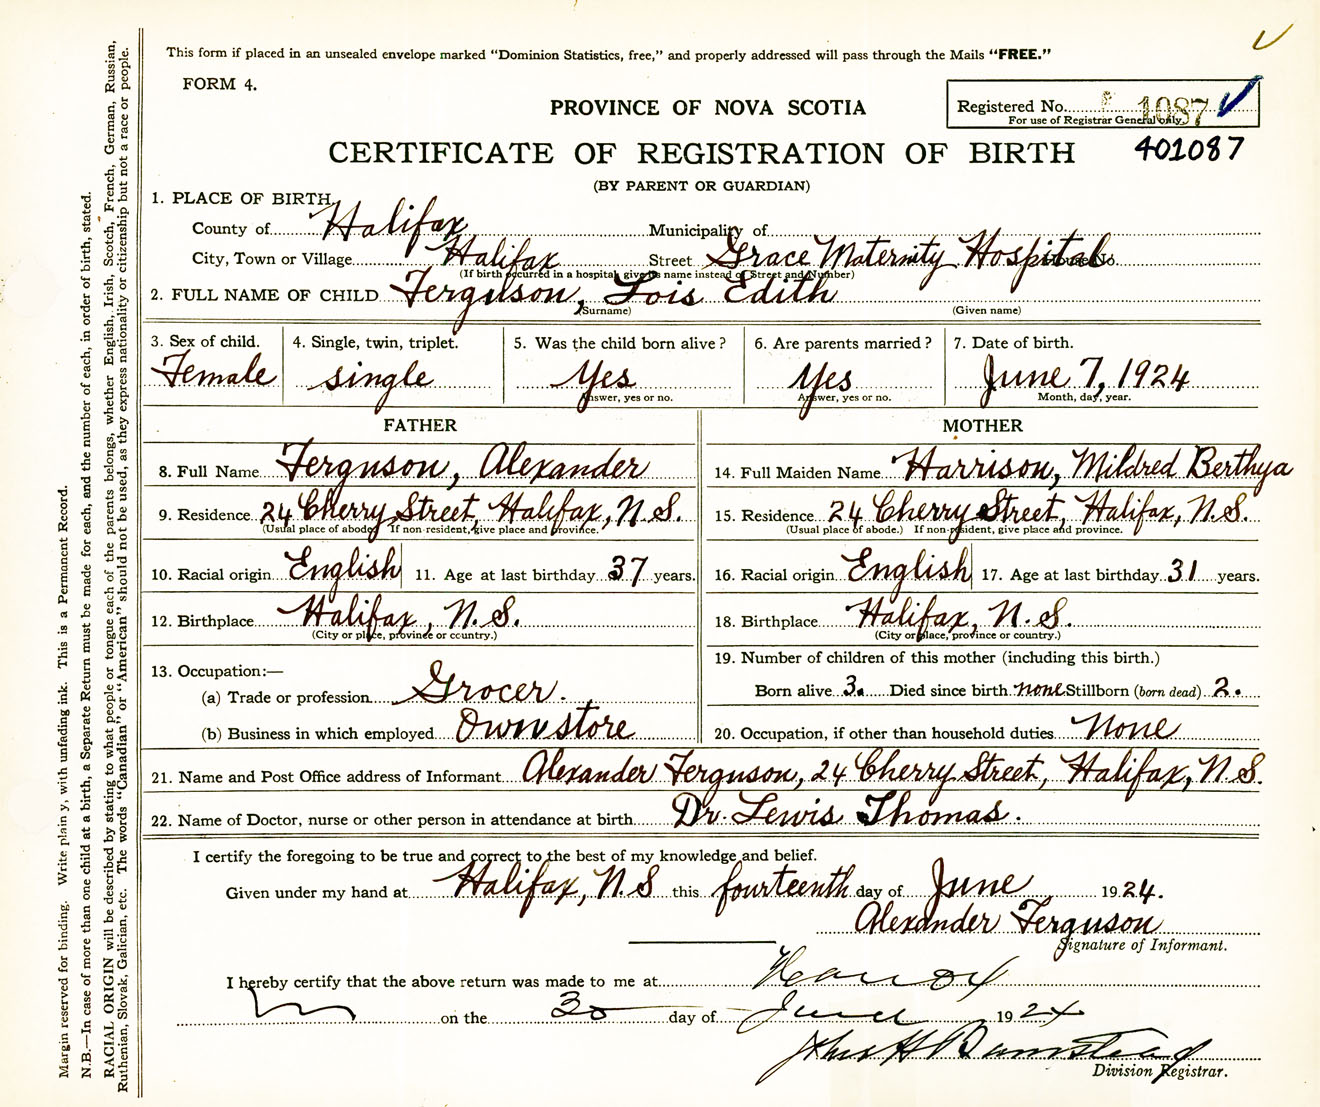 This form if placed in an unsealed envelope marked “Dominion Statistics, free,” and properly addressed will pass through the Mails “FREE.”
FORM 4.
PROVINCE OF NOVA SCOTIA
Registered No. 1087
For use of Registrar General only.
401087
CERTIFICATE OF REGISTRATION OF BIRTH
(BY PARENT OR GUARDIAN)
1. PLACE OF BIRTH
County of Halifax Municipality of
City, Town or Village Halifax Street Grace Maternity Hospital House No.
(If birth occurred in a hospital, give its name instead of Street and Number)
2. FULL NAME OF CHILD Ferguson, Lois Edith
(Surname) (Given name)
3. Sex of child. 4. Single, twin, triplet. 5. Was the child born alive? 6. Are parents married? 7. Date of birth.
Female single Yes Yes June 7, 1924
Answer, yes or no. Answer, yes or no. Month, day, year.
FATHER MOTHER
8. Full Name Ferguson, Alexander 14. Full Maiden Name Harrison, Mildred Berthya
9. Residence 24 Cherry Street, Halifax, N.S. 15. Residence 24 Cherry Street, Halifax, N.S.
(Usual place of abode) If non-resident, give place and province. (Usual place of abode.) If non-resident, give place and province.
10. Racial origin English 11. Age at last birthday 37 years. 16. Racial origin English 17. Age at last birthday 31 years.
12. Birthplace Halifax, N.S. 18. Birthplace Halifax, N.S.
(City or place, province or country.) (City or place, province or country.)
13. Occupation:— 19. Number of children of this mother (including this birth.)
(a) Trade or profession Grocer. Born alive 3. Died since birth none Stillborn (born dead) 2.
(b) Business in which employed Own store 20. Occupation, if other than household duties None
21. Name and Post Office address of Informant Alexander Ferguson, 24 Cherry Street, Halifax, N.S.
22. Name of Doctor, nurse or other person in attendance at birth Dr. Lewis Thomas.
I certify the foregoing to be true and correct to the best of my knowledge and belief.
Given under my hand at Halifax, N.S this fourteenth day of June 1924.
Alexander Ferguson
Signature of Informant.
I hereby certify that the above return was made to me at
on the 30 day of June 1924
Division Registrar.
Margin reserved for binding. Write plainly, with unfading ink. This is a Permanent Record.
N.B.—In case of more than one child at a birth, a Separate Return must be made for each, and the number of each, in order of birth, stated.
RACIAL ORIGIN will be described by stating to what people or tongue each of the parents belongs, whether English, Irish, Scotch, French, German, Russian,
Ruthenian, Slovak, Galician, etc. The words “Canadian” or “American” should not be used, as they express nationality or citizenship but not a race or people.